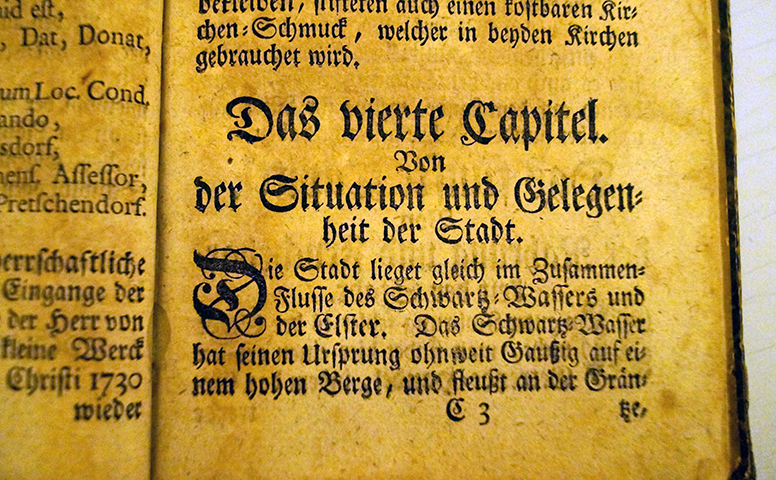 aid est,
, Dat, Donat,
um Loc. Cond.
ando,
sdorf,
mens. Assessor,
Pretschendorf.
errschaftliche
Eingange der
der Herr von
kleine Werck
Christi 1730
wieder
stifteten auch einen kostbaren Kir-
chen-Schmuck, welcher in beyden Kirchen
gebrauchet wird.
Das vierte Capitel.
Von
der Situation und Gelegen-
heit der Stadt.
Die Stadt lieget gleich im Zusammen-
Flusse des Schwartz-Wassers und
der Elster. Das Schwartz-Wasser
hat seinen Ursprung ohnweit Gaußig auf ei-
nem hohen Berge, und fleußt an der Grän-
C 3 tze,